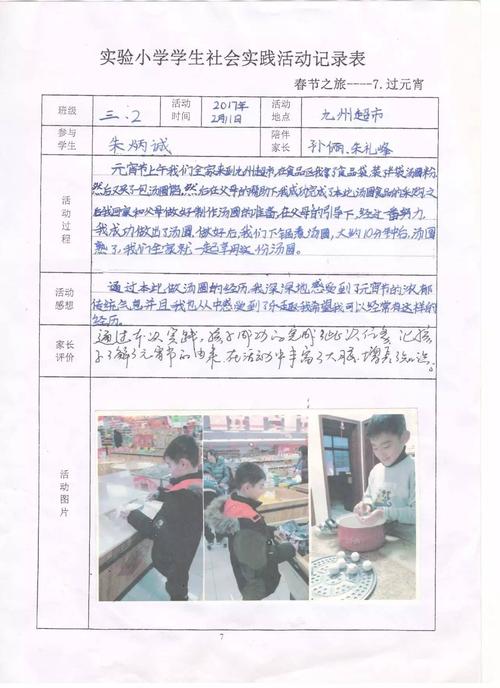 实验小学学生社会实践活动记录表
春节之旅----7.过元宵
班级 三.2 活动时间 2017年2月11日 活动地点 九州超市
参与学生 朱炳诚 陪伴家长 孙俩、朱礼峰
活动过程
元宵节上午我们全家来到九州超市,在食品区我拿了食品袋,装半袋汤圆粉,
然后又买了包汤圆馅,然后在父母的帮助下我成功完成了本此汤圆食品的采购之
后我回家和父母做好制作汤圆的准备,在父母的引导下,经过一番努力,
我成功做出了汤圆。做好后,我们下锅煮汤圆,大约10分钟后,汤圆
熟了,我们全家就一起享用这份汤圆。
活动感想
通过本此做汤圆的经历,我深深地感受到了元宵节的浓郁
传统气息并且我也从中感受到了乐趣我希望我可以经常有这样的
经历。
家长评价
通过本次实践,孩子成功的完成此次任务,让孩
子了解了元宵节的由来,在活动中丰富了大脑,增长了知识。
活动图片
7